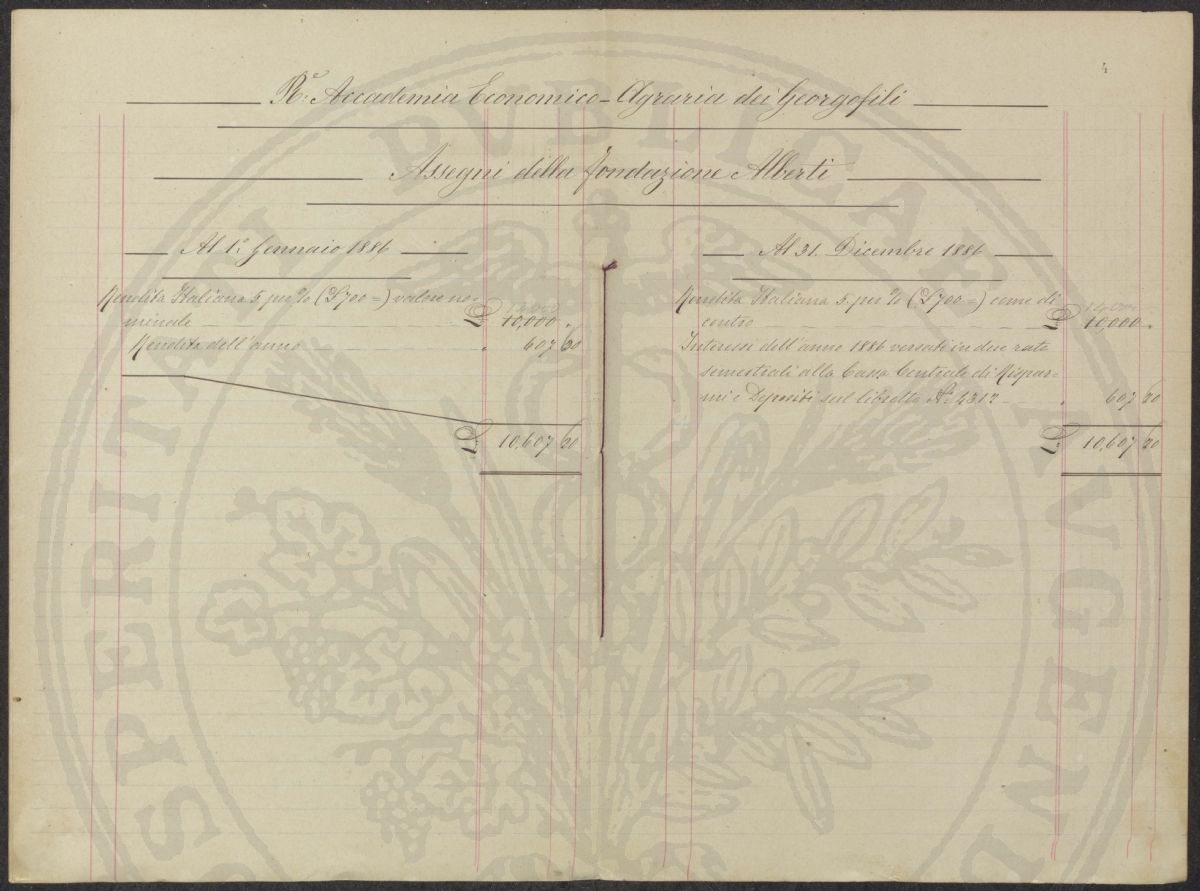 4
R.e Accademia Economico-Agraria dei Georgofili
Assegni della fondazione Alberti
Al 1.o Gennaio 1886
Rendita Italiana 5 per % (£700=) valore no-
14,000
minale £ 10,000 "
Rendita dell'anno " 607 60
£ 10,607 60
Al 31. Dicembre 1886
Rendita Italiana 5 per % (£700=) come di
14,000
contro £ 10,000 "
Interessi dell'anno 1886 versati in due rate
semestrali alla Cassa Centrale di Rispar-
mi e Depositi sul libretto N.o 4312 " 607 60
£ 10,607 60
PROSPERITATI PUBLICAE AUGENDAE